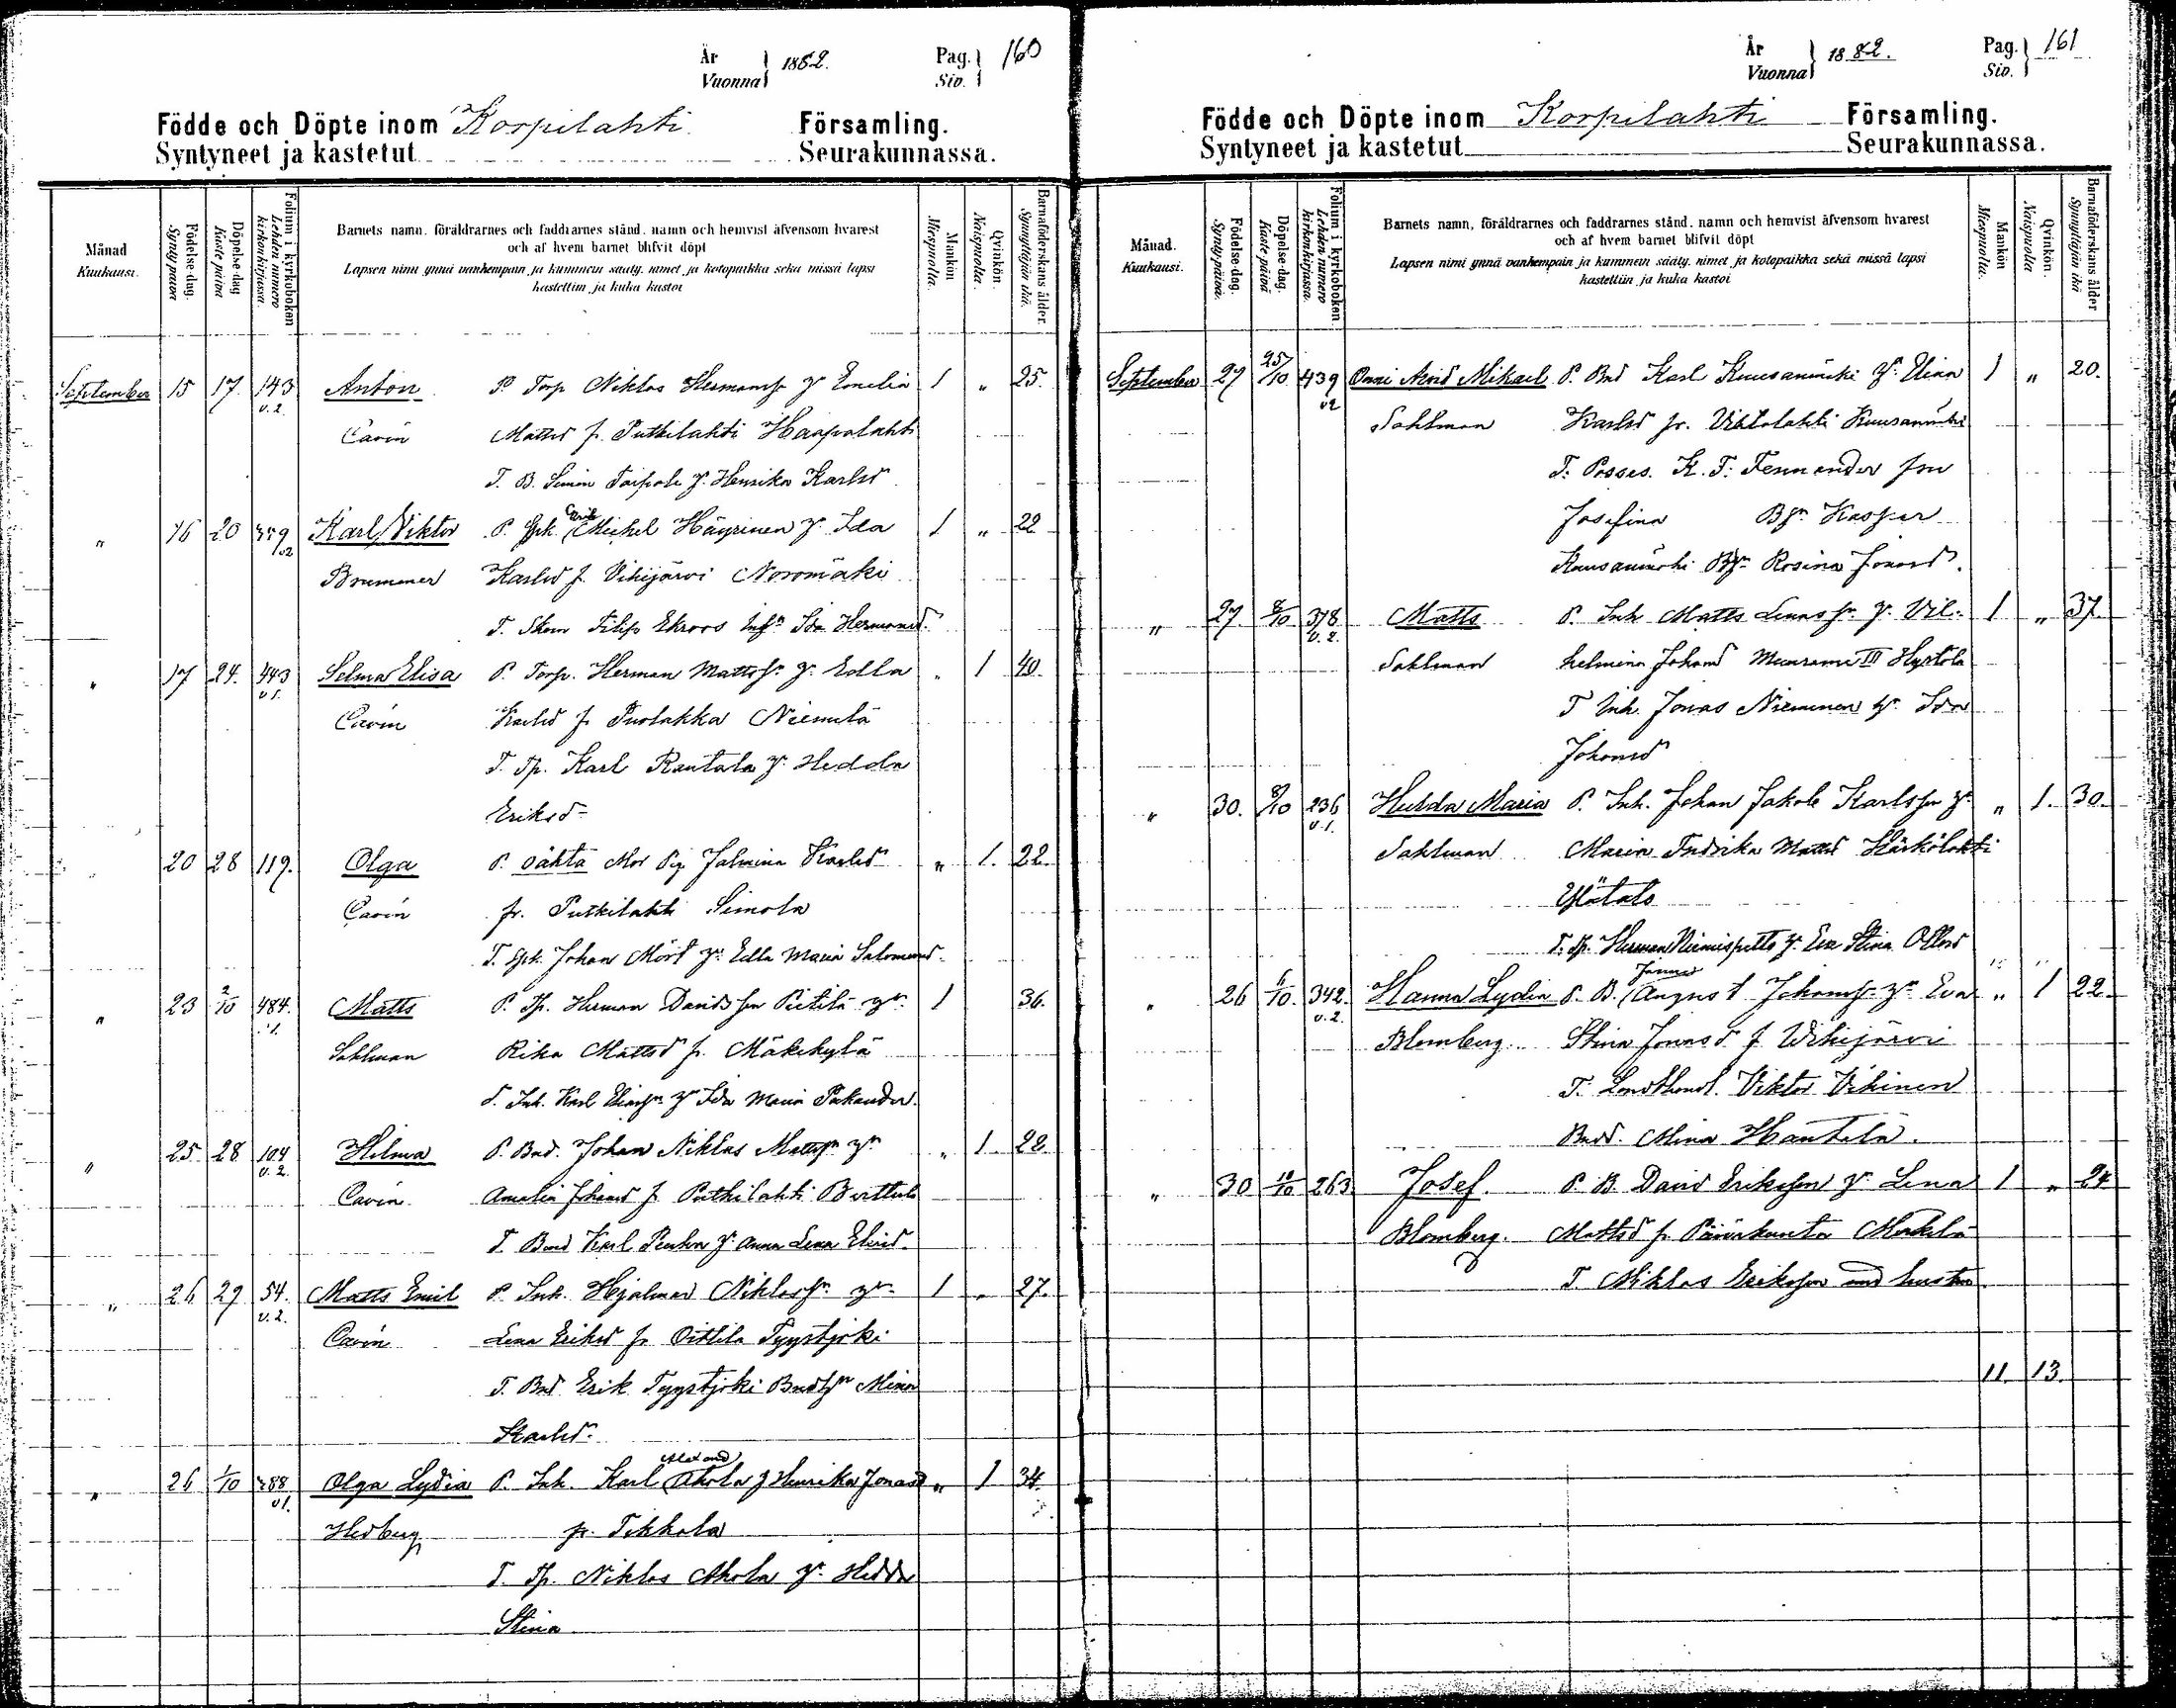 År
Vuonna 1882.
Pag.
Siv. 160
Födde och Döpte inom Korpilahti Församling.
Syntyneet ja kastetut Seurakunnassa.
Månad
Kuukausi.
Födelse-dag.
Synty päivä
Döpelse-dag
Kaste päivä
Folium i kyrkoboken
Lehden numero kirkonkirjassa.
Barnets namn, föräldrarnes och faddrarnes stånd, namn och hemvist äfvensom hvarest
och af hvem barnet blifvit döpt
Lapsen nimi ynnä vanhempain ja kummein sääty, nimet ja kotopaikka sekä missä lapsi
kastettiin ja kuka kastoi
Mankön
Miespuolta.
Qvinkön.
Naispuolta.
Barnaföderskans ålder.
Synnyttäjän ikä.
September 15 17. 143 Anton P Torp Niklas Hermanss. Hr Emelia 1 " 25.
v. 2. Cavén Mattsd fr. Putkilahti Haapalahti
T. B. Simon Taipale Hr. Henrika Karlsd
" 16 20 359 Karl Viktor P. Michel Häyrinen Hr Ida 1 " 22
v2 Brummer Karlsd f. Vihijärvi Noromäki
T. Skom Filip Ekroos Ida Hermansd.
" 17 24. 443 Selma Elisa P. Torp. Herman Mattss. Hr Edla " 1 40.
v 1. Cavén Karlsd fr Puolakka Niemelä
T. Tp. Karl Rautala Hr Hedda
Eriksd
" 20 28 119. Olga P. oäkta Mor Pig Jalmina Karlsd " 1. 22.
Cavén fr. Putkilahti Simola
T. Johan Mört Hr Edla Maria Salomonsd.
" 23 2/10 484. Matts P. Tp. Herman Davidsson Pietilä Hr. 1 36.
Sahlman Rika Mattsd fr. Mäkikylä
T. Inh. Karl Hr Ida Maria
" 25. 28. 104 Hilma P. Bnd. Johan Niklas Mattss. Hr " 1 22
v. 2. Cavén Amalia Johansd fr Putkilahti Berttula
T. Bond Karl Hr. Anna Lena
" 26 29 54. Matts Emil P. Inh. Hjalmar Niklass. Hr 1 " 27.
v. 2. Cavén Lena Eriksd fr Oittila Tyystjoki
T. Bnd Erik Tyystjoki Mina
Karlsd.
" 26 1/10 288 Olga Lydia P. Inh. Karl Ahola Henrika Jonasd " 1 34.
v1. Hedberg fr. Tikkala
T. Tp. Niklas Ahola Hr Hedda
Stina
År
Vuonna 1882.
Pag.
Siv. 161
Födde och Döpte inom Korpilahti Församling.
Syntyneet ja kastetut Seurakunnassa.
Månad.
Kuukausi.
Födelse-dag.
Synty-päivä.
Döpelse-dag.
Kaste-päivä
Folium i kyrkoboken.
Lehden numero kirkonkirjassa.
Barnets namn, föräldrarnes och faddrarnes stånd, namn och hemvist äfvensom hvarest
och af hvem barnet blifvit döpt
Lapsen nimi ynnä vanhempain ja kummein sääty, nimet ja kotopaikka sekä missä lapsi
kastettiin ja kuka kastoi
Mankön
Miespuolta.
Qvinkön.
Naispuolta
Barnaföderskans ålder
Synnyttäjän ikä
September 27 25/10 439 Onni Arvid Mikael P. Bnd Karl Kuusanmäki Hr. Elina 1 " 20.
v2 Sahlman Karlsd fr. Kuusanmäki
T. Posses. K. F. Fennander fru
Josefina Kasper
Kuusanmäki Rosina Jonasd.
" 27 8/10 378 Matts P. Inh Matts Hr. Vil- 1 " 37.
v. 2. Sahlman helmina Johansd Muurame III Hyrtola
T Inh. Jonas Nieminen Hr. Ida
Johansd
" 30. 8/10 236 Hulda Maria P. Inh. Johan Jakob Karlsson Hr " 1. 30.
v. 1. Sahlman Maria Fredrika Mattsd Särkilahti
Ylätalo
T. Tp. Herman Niemispelto Hr. Eva Stina
" 26 1/10. 342. Hanna Lydia P. B. August Johanss. Hr Eva " 1 22.
v. 2. Blomberg. Stina Jonasd f Wihijärvi
T. Viktor Vihinen
Mina Hautala.
" 30 263. Josef. P. B. David Eriksson Hr Lena 1 " 24
Blomberg. Mattsd fr. Päiväkunta Mäkelä
T. Niklas Eriksson med hustru
11. 13.